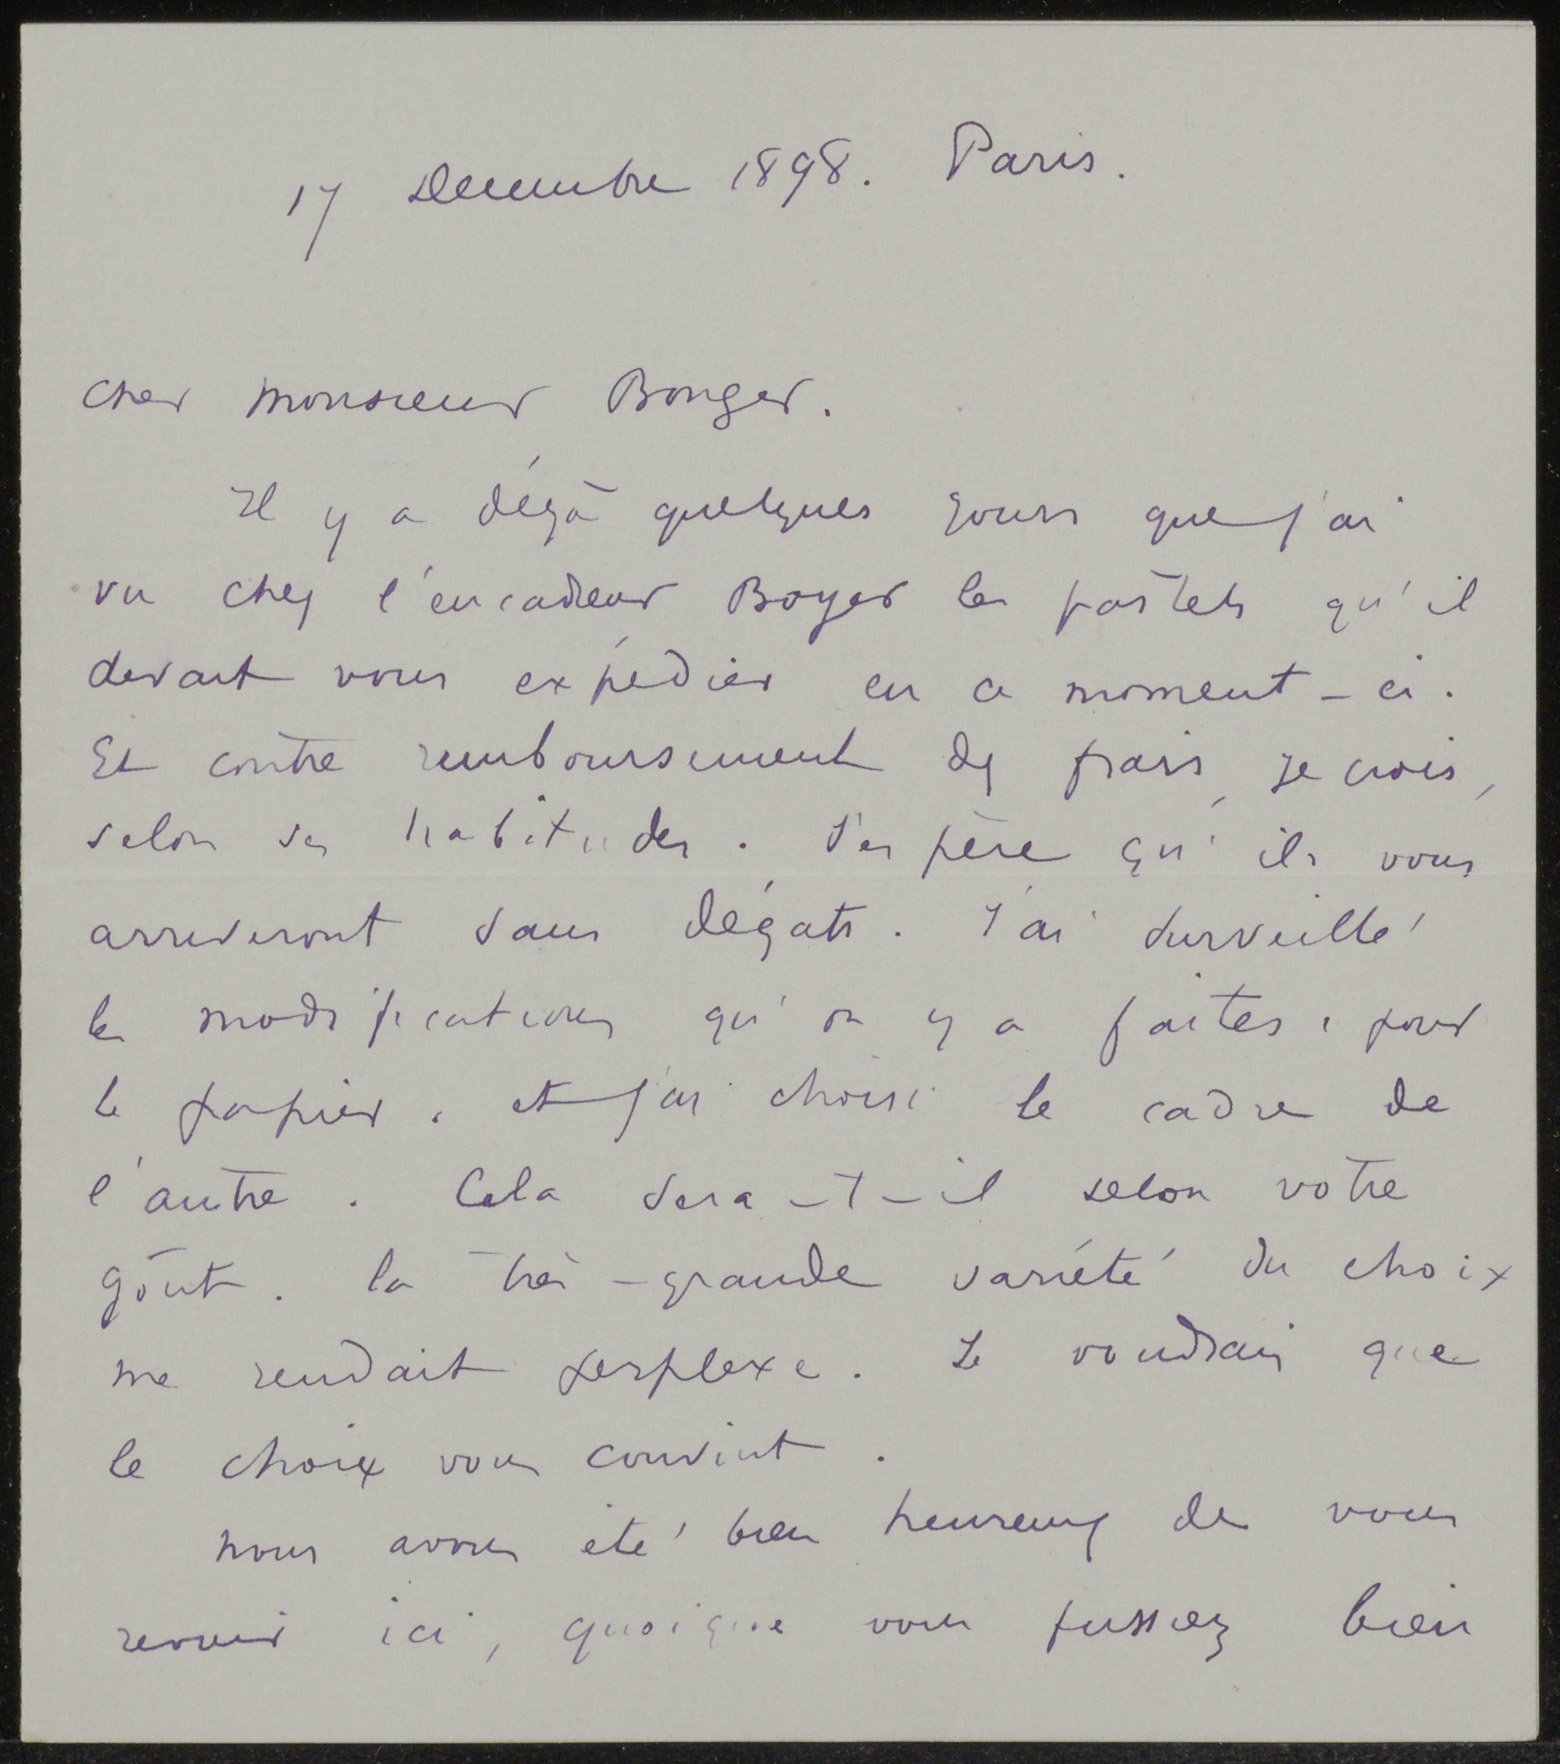 17 Decembre 1898. Paris.
Cher Monsieur Bonger.
Il y a déjà quelques jours que j'ai
vu chez l'encadreur Boyer les pastels qu'il
devait vous expédier en ce moment-ci.
Et contre remboursement des frais, je crois,
selon ses habitudes. J'espère qu'ils vous
arriveront sans dégats. J'ai surveillé
les modifications qu'on y a faites, pour
le papier, et j'ai choisi le cadre de
l'autre. Cela sera-t-il selon votre
goût. la très-grande variété du choix
me rendait perplexe. Je voudrais que
le choix vous convint.
Nous avons été bien heureux de vous
revoir ici, quoique vous fussiez bien